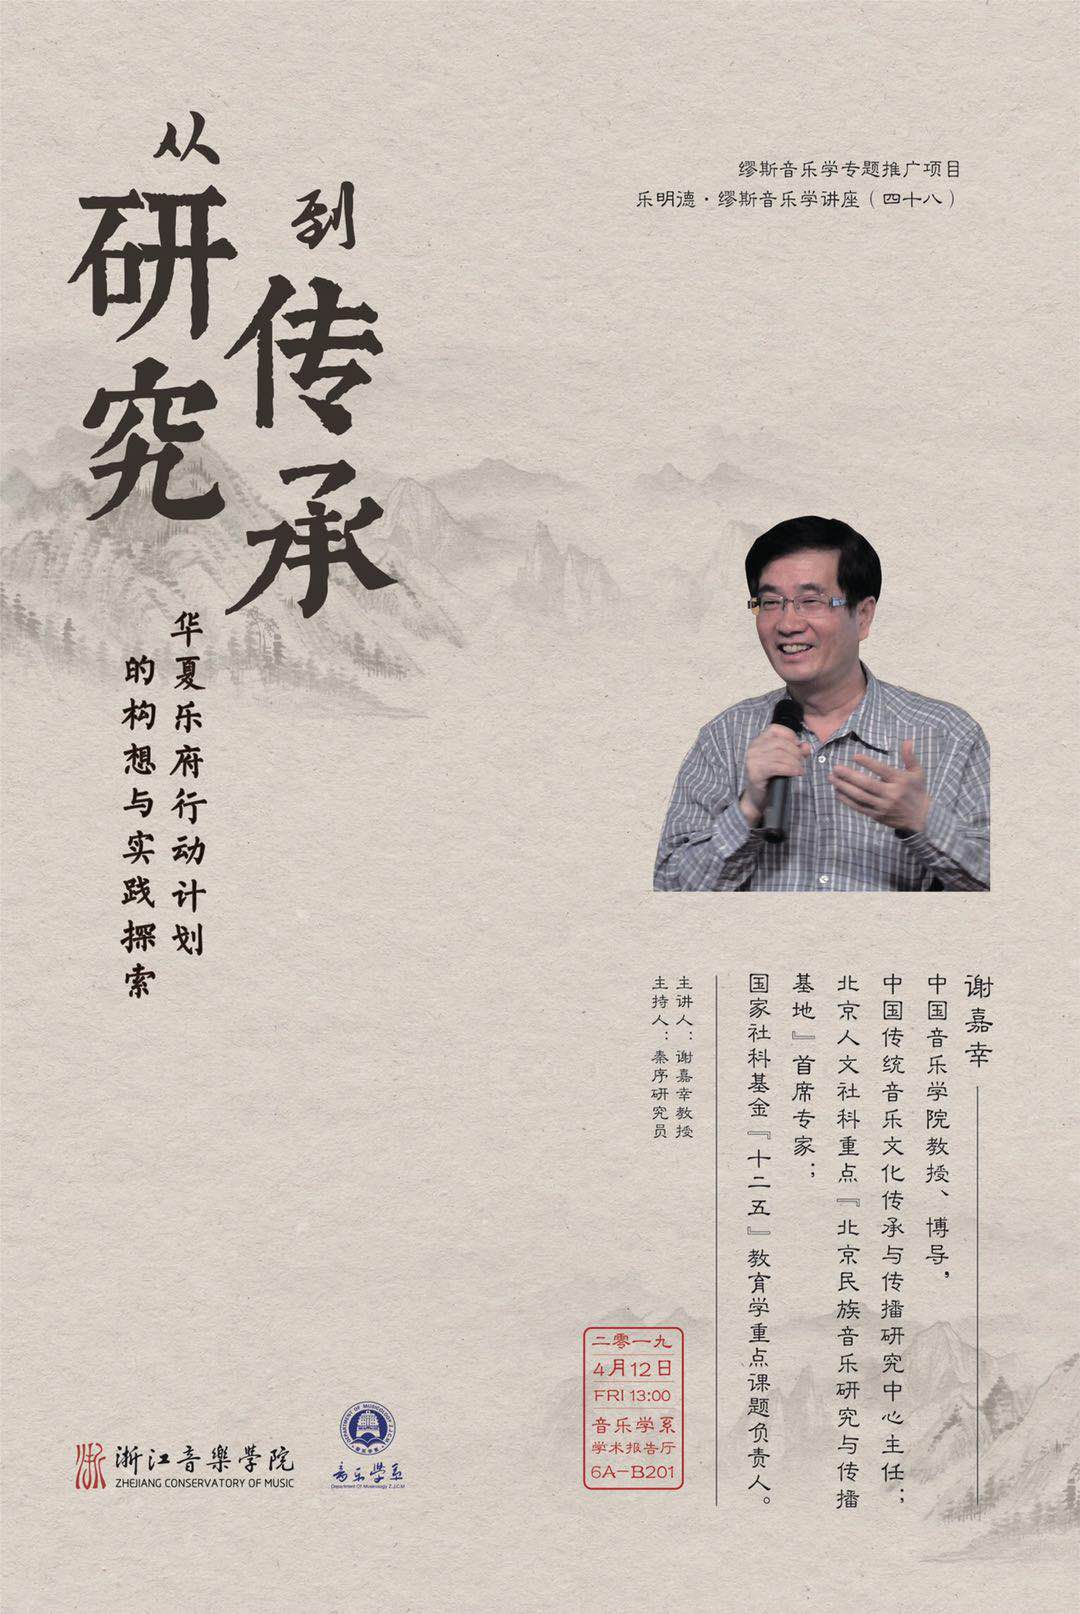 从
研究
到
传承
华夏乐府行动计划
的构想与实践探索
缪斯音乐学专题推广项目
乐明德·缪斯音乐学讲座（四十八）
谢嘉幸
中国音乐学院教授、博导，
中国传统音乐文化传承与传播研究中心主任；
北京人文社科重点『北京民族音乐研究与传播
基地』首席专家；
国家社科基金『十二五』教育学重点课题负责人。
主讲人：谢嘉幸教授
主持人：秦序研究员
二零一九
4月12日
FRI 13:00
音乐学系
学术报告厅
6A-B201
浙江音樂學院
ZHEJIANG CONSERVATORY OF MUSIC
DEPARTMENT OF MUSICOLOGY Z.J.C.M
音乐学系
音乐学系
Department Of Musicology Z.J.C.M